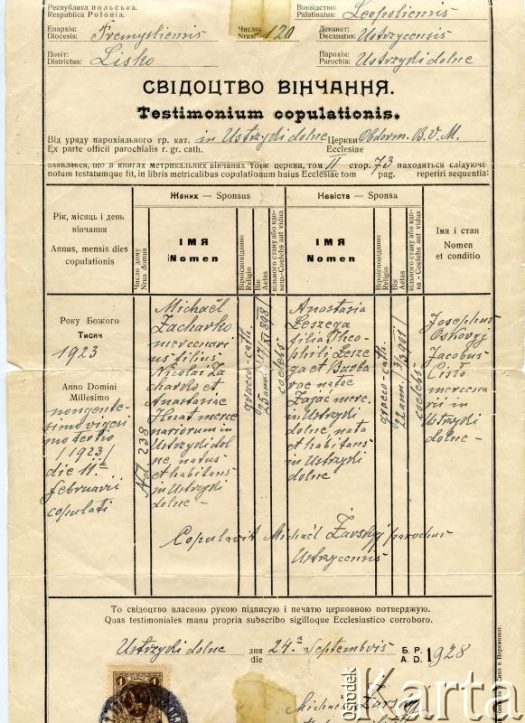 Республика польська.
Respublica Polonia.
Воєвідство:
Palatinatus: Leopoliensis
Епархія:
Diocesis: Premysliensis
Число:
Nrus: 120
Деканат:
Decanatus: Ustrzycensis
Повіт:
Districtus: Lisko
Парохія:
Parochia: Ustrzyki dolne
СВІДОЦТВО ВІНЧАННЯ.
Testimonium copulationis.
Від уряду парохіяльного гр. кат. in Ustrzyki dolne Церкви Obdorm. B.V.M.
Ex parte officii parochialis r. gr. cath. Ecclesiae
що в книгах метрикальних вінчаних тоїж церкви, том II стор. 73 находиться слідуюче
notum testatumque fit, in libris metricalibus copulationum huius Ecclesiae tom pag. reperiri sequentia:
Рік, місяць і день
вінчання
Annus, mensis dies
copulationis
Жених — Sponsus
Число дому
Nrus domus
ІМЯ
Nomen
Віроісповідання
Religio
Вік
Aetas
Coelebs aut vidua
Невіста — Sponsa
ІМЯ
Nomen
Віроісповідання
Religio
Вік
Aetas
Coelebs aut vidua
Імя і стан
Nomen
et conditio
Року Божого
Тисяч
1923
Anno Domini
Millesimo
nongente-
simo vigesi
mo tertio
/1923/
die 11ª
februarii
copulati
Nd 238
Michaël
Zacharko
mercenari
us filius
Nicolai Za
charko et
Anastasiae
Hnat merce
nariorum in
Ustrzyki dol
ne natus
et habitans
in Ustrzyki
dolne
graeco-cath.
25 ann.
coelebs
Anastasia
Leszega
filia Theo-
phili Lesze
ga et Barba
rae natae
Zając merc.
in Ustrzyki
dolne nata
et habitans
in Ustrzyki
dolne
graeco-cath.
22 ann.
coelebs
Josephus
Jacobus
mercena
rii in
Ustrzyki
dolne
Copulavit Michaël Żarskyj parochus
Ustrzycensis
То свідоцтво власною рукою підписую і печатю церковною потверджую.
Quas testimoniales manu propria subscribo sigilloque Ecclesiastico corroboro.
Ustrzyki dolne дня
die 24.ª Septembris Б. Р.
A. D. 1928
1
Michaël Żarskyj
ośrodek
Karta